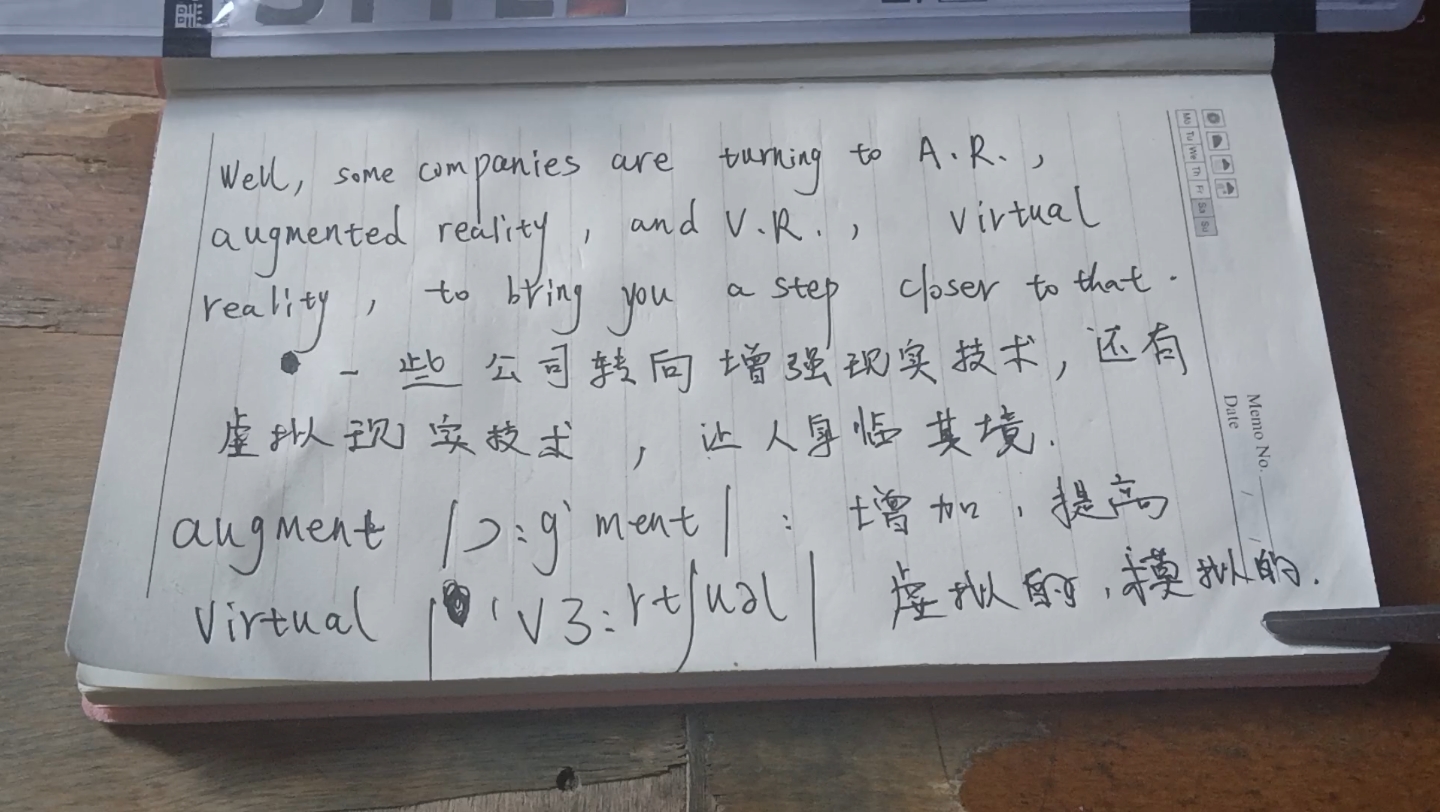 Well, some companies are turning to A.R.,
augmented reality, and V.R., virtual
reality, to bring you a step closer to that.
一些公司转向增强现实技术, 还有
虚拟现实技术, 让人身临其境.
augment /ɔ:g'ment/ : 增加, 提高
virtual /'vɜ:rtʃuəl/ 虚拟的, 模拟的.
Memo No.
Date
Mo Tu We Th Fr Sa Su